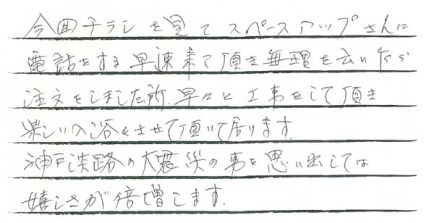 今回チラシを見てスペースアップさんに
電話をする早速来て頂き無理を云い乍ら
注文をしました所、早々と工事をして頂き
楽しい入浴をさせて頂いて居ります
神戸淡路の大震災の事を思い出しては
嬉しさが倍増します。